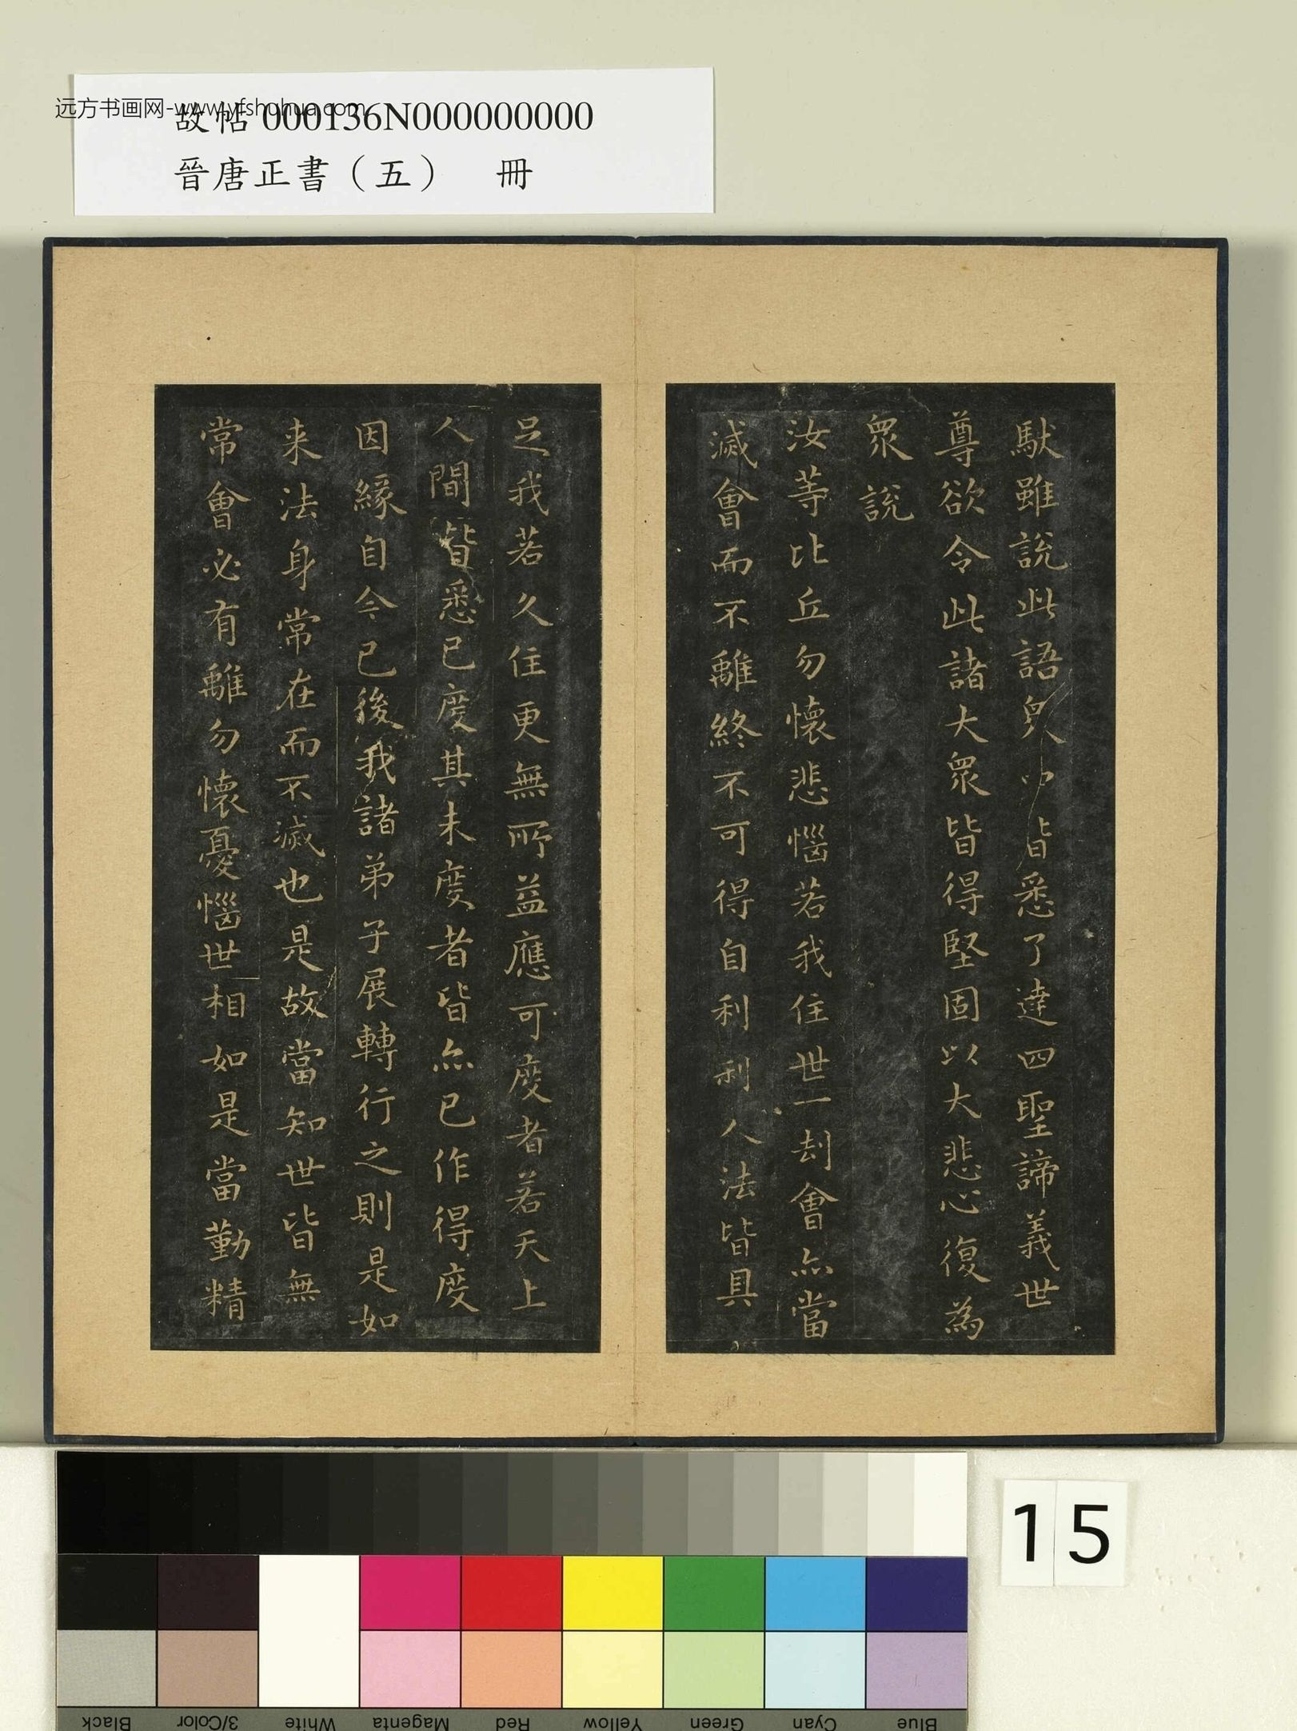 远方书画网-www.yfshuhua.com
故帖 000136N000000000
晉唐正書（五）　冊
馱雖說此語眾中皆悉了達四聖諦義世
尊欲令此諸大眾皆得堅固以大悲心復為
眾說
汝等比丘勿懷悲惱若我住世一刦會亦當
滅會而不離終不可得自利利人法皆具
足我若久住更無所益應可度者若天上
人間皆悉已度其未度者皆亦已作得度
因緣自今已後我諸弟子展轉行之則是如
来法身常在而不滅也是故當知世皆無
常會必有離勿懷憂惱世相如是當勤精
15
Black
3/Color
White
Magenta
Red
Yellow
Green
Cyan
Blue